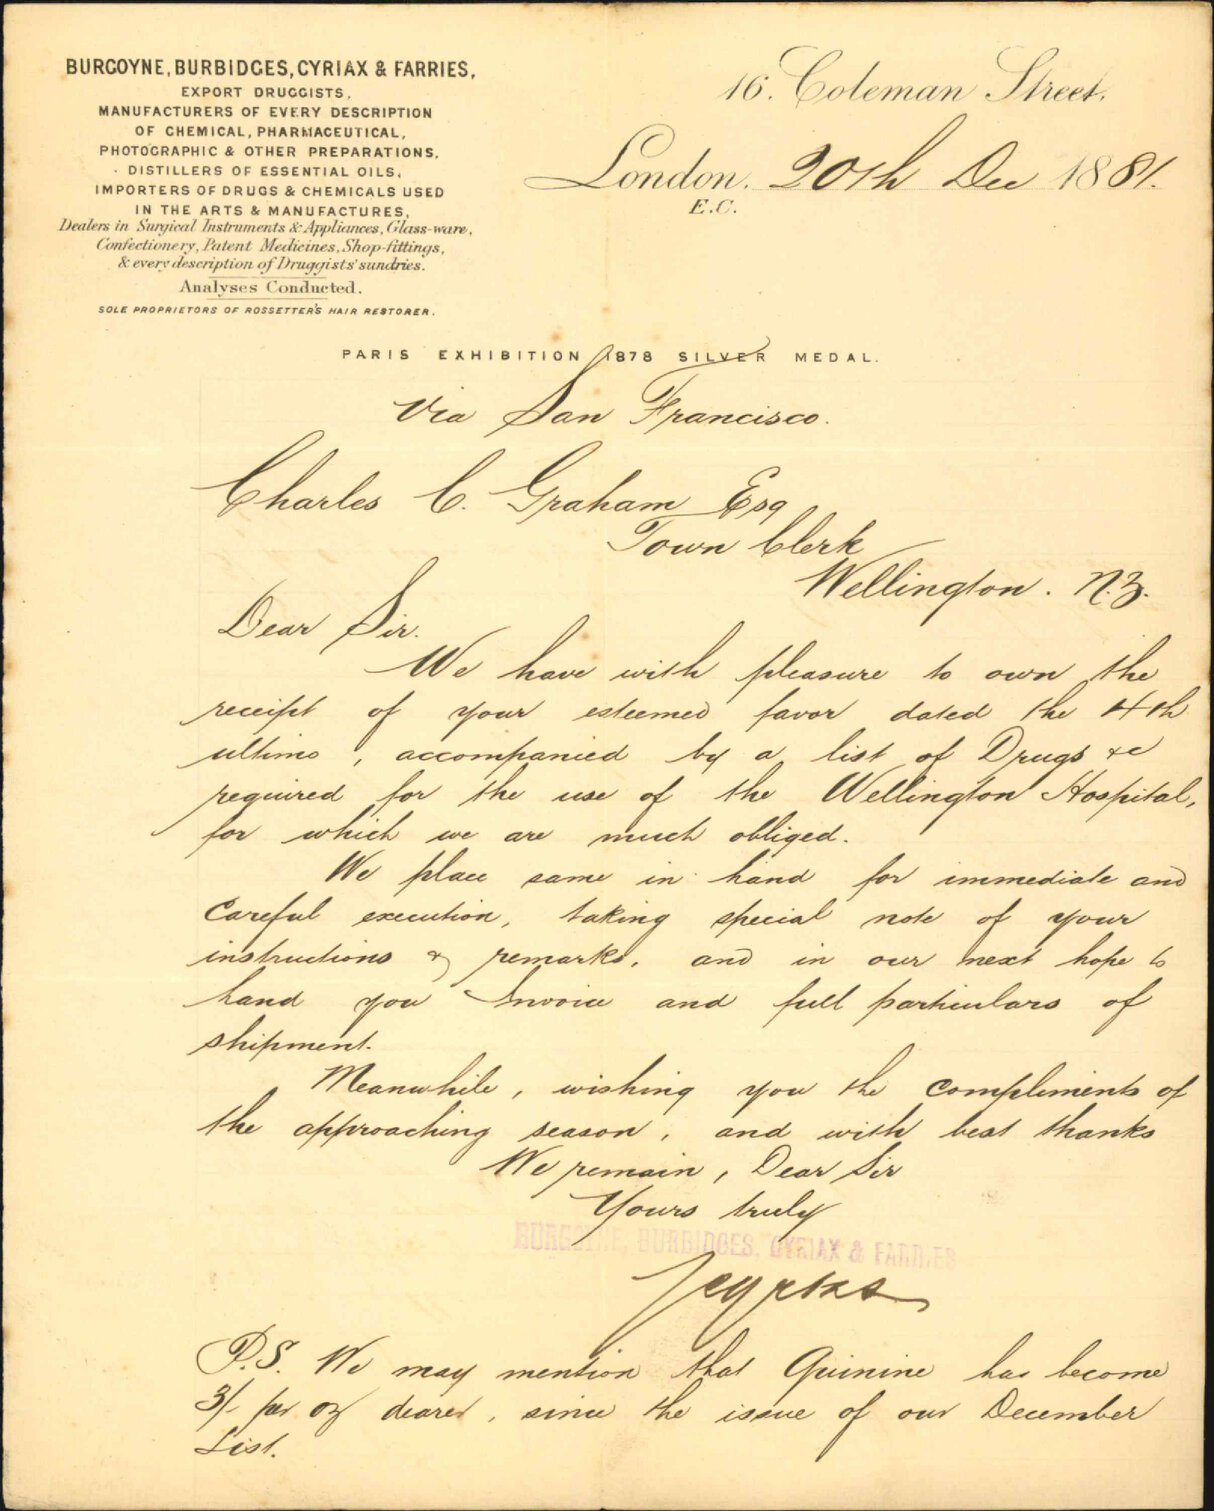 BURGOYNE, BURBIDGES, CYRIAX & FARRIES,
EXPORT DRUGGISTS,
MANUFACTURERS OF EVERY DESCRIPTION
OF CHEMICAL, PHARMACEUTICAL,
PHOTOGRAPHIC & OTHER PREPARATIONS,
DISTILLERS OF ESSENTIAL OILS,
IMPORTERS OF DRUGS & CHEMICALS USED
IN THE ARTS & MANUFACTURES,
Dealers in Surgical Instruments & Appliances, Glass-ware,
Confectionery, Patent Medicines, Shop-fittings,
& every description of Druggists' sundries.
Analyses Conducted.
SOLE PROPRIETORS OF ROSSETTER'S HAIR RESTORER.
16. Coleman Street,
London, 20th Dec 1881.
E.C.
PARIS EXHIBITION 1878 SILVER MEDAL.
Via San Francisco.
Charles C. Graham Esq
Town Clerk
Wellington. N.Z.
Dear Sir.
We have with pleasure to own the
receipt of your esteemed favor dated the 4th
ultimo, accompanied by a list of Drugs &c
required for the use of the Wellington Hospital,
for which we are much obliged.
We place same in hand for immediate and
careful execution, taking special note of your
instructions & remarks, and in our next hope to
hand you Invoice and full particulars of
shipment.
Meanwhile, wishing you the compliments of
the approaching season, and with best thanks
We remain, Dear Sir
Yours truly
BURGOYNE, BURBIDGES, CYRIAX & FARRIES
P.S. We may mention that Quinine has become
3/- per oz dearer, since the issue of our December
List.